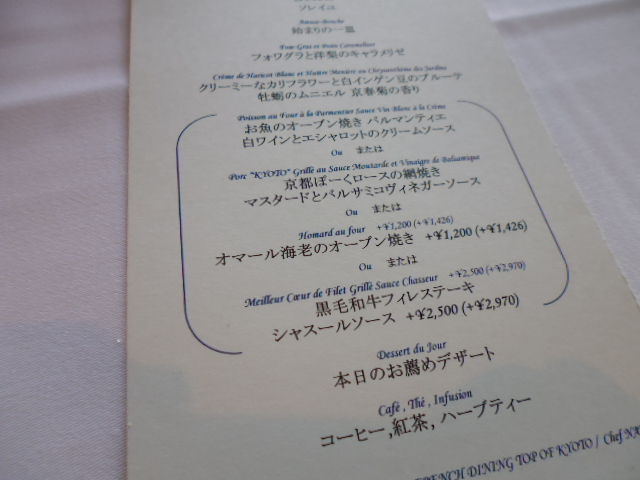 ソレイユ
Amuse-Bouche
始まりの一皿
Foie Gras et Poire Caramelisée
フォワグラと洋梨のキャラメリゼ
Crème de Haricot Blanc et Huître Meunière au Chrysanthème des Jardins
クリーミーなカリフラワーと白インゲン豆のブルーテ
牡蛎のムニエル 京春菊の香り
Poisson au Four à la Parmentier Sauce Vin Blanc à la Crème
お魚のオーブン焼き パルマンティエ
白ワインとエシャロットのクリームソース
Ou または
Porc "KYOTO" Grillé au Sauce Moutarde et Vinaigre de Balsamique
京都ぽーくロースの網焼き
マスタードとバルサミコヴィネガーソース
Ou または
Homard au four +¥1,200 (+¥1,426)
オマール海老のオーブン焼き +¥1,200 (+¥1,426)
Ou または
Meilleur Cœur de Filet Grillé Sauce Chasseur +¥2,500 (+¥2,970)
黒毛和牛フィレステーキ
シャスールソース +¥2,500 (+¥2,970)
Dessert du Jour
本日のお薦めデザート
Café , Thé , Infusion
コーヒー,紅茶, ハーブティー
FRENCH DINING TOP OF KYOTO / Chef